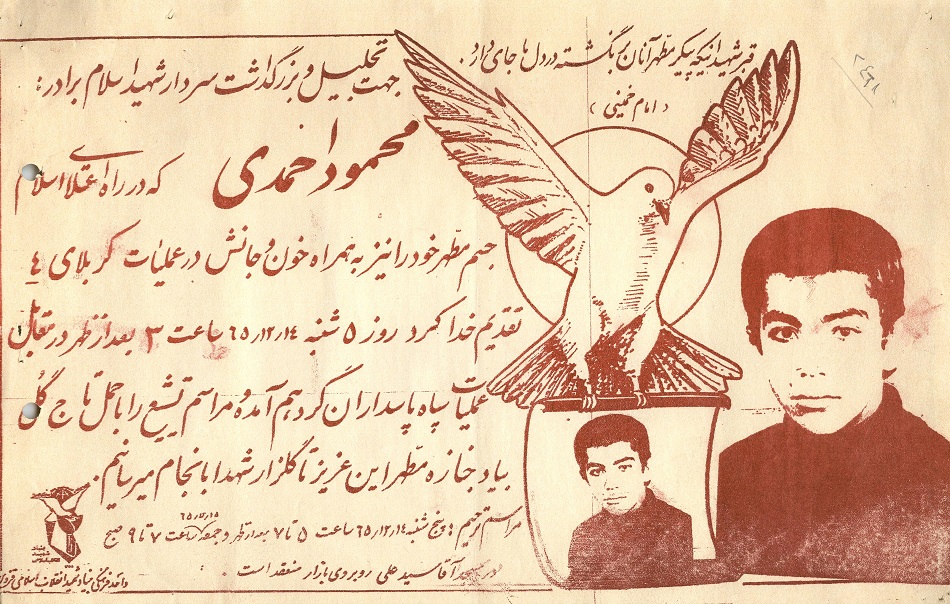 قبر شهدائیکه پیکر مطهر آنان برنگشته در دل ها جای دارد.
(امام خمینی)
جهت تجلیل و بزرگداشت سردار شهید اسلام برادر:
محمود احمدی
که در راه اعتلای اسلام
جسم مطهر خود را نیز به همراه خون و جانش در عملیات کربلای ٤
تقدیم خدا کرد روز ۵ شنبه ۶۵/۱۲/۱۴ ساعت ۳ بعد از ظهر در مقابل
عملیات سپاه پاسداران گرد هم آمده و مراسم تشییع را با حمل تاج گل
بیاد جنازه مطهر این عزیز تا گلزار شهدا بانجام میرسانیم.
مراسم ترحیم پنج شنبه ۶۵/۱۲/۱۴ ساعت ۵ تا ۷ بعد از ظهر و جمعه ۶۵/۱۲/۱۵ ساعت ۷ تا ۹ صبح
در مسجد آقا سید علی روبروی بازار منعقد است.
واحد فرهنگی بنیاد شهید انقلاب اسلامی